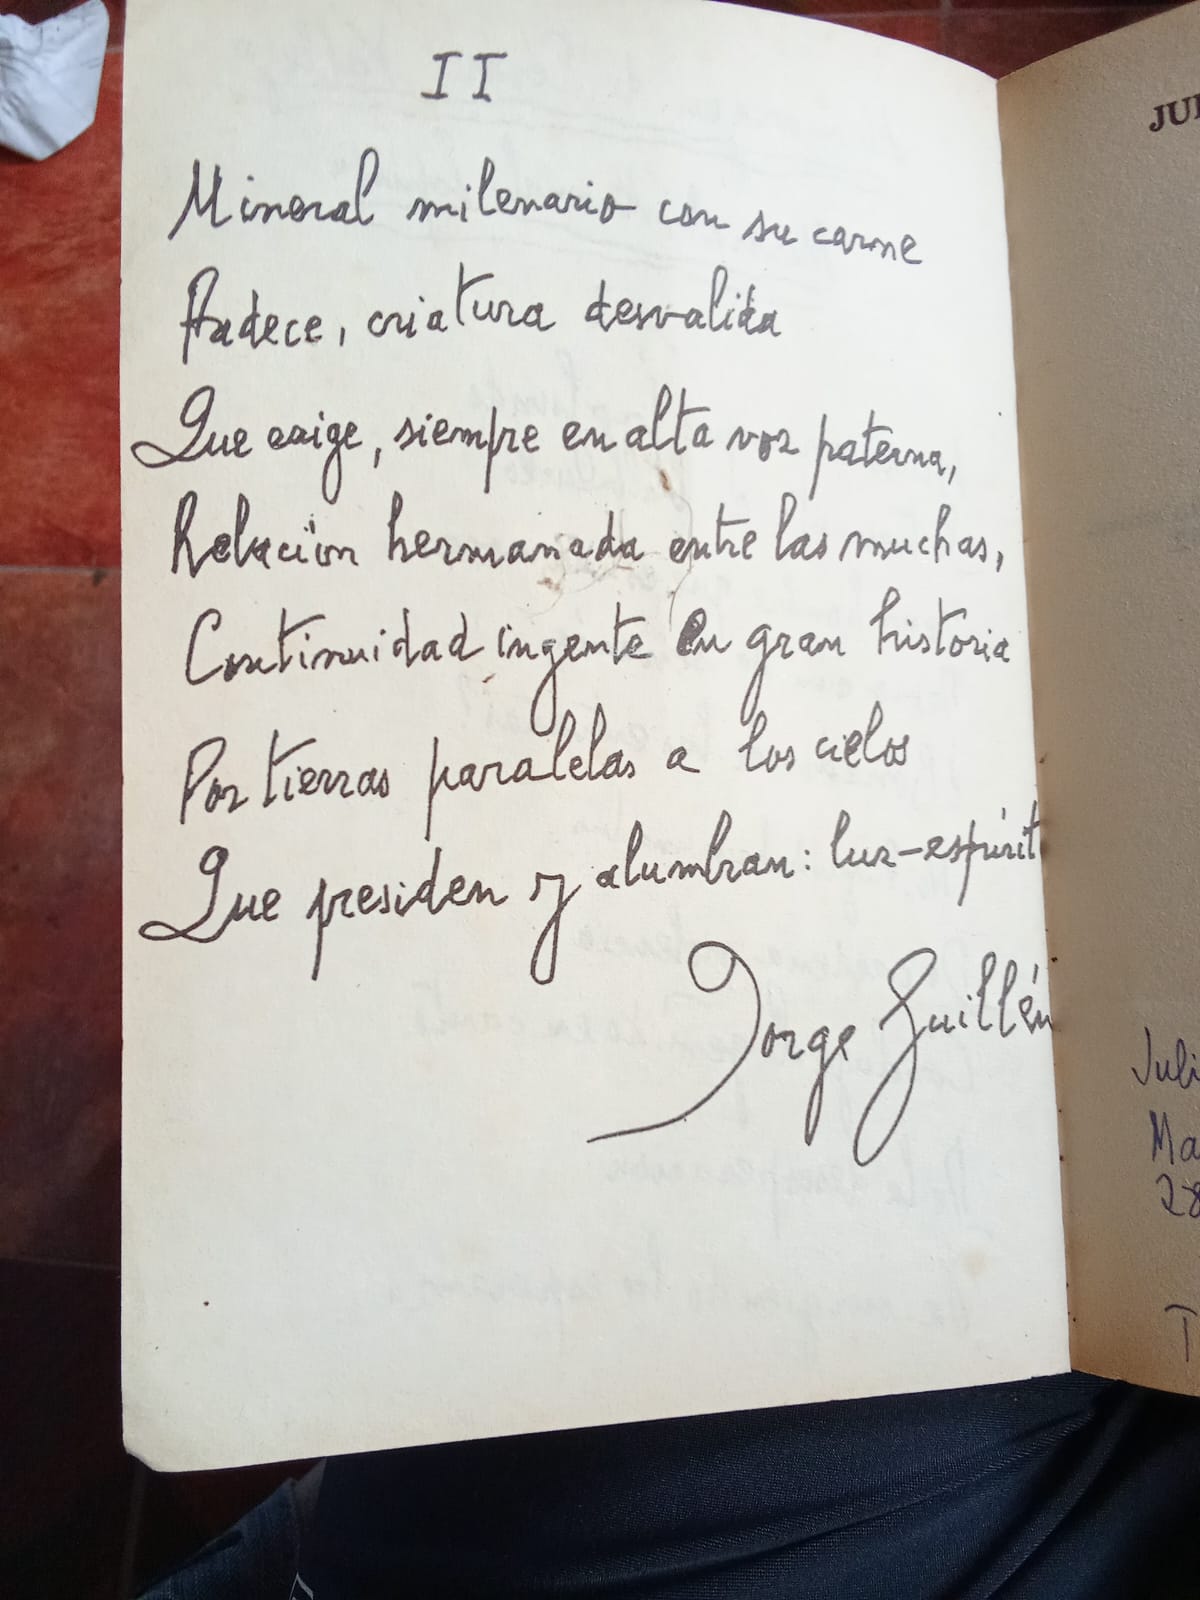 II
Mineral milenario con su carne
Padece, criatura desvalida
Que exige, siempre en alta voz paterna,
Relación hermanada entre las muchas,
Continuidad ingente en gran historia
Por tierras paralelas a los cielos
Que presiden y alumbran: luz-espírit
Jorge Guillén
JUL
Juli
Ma
28
T